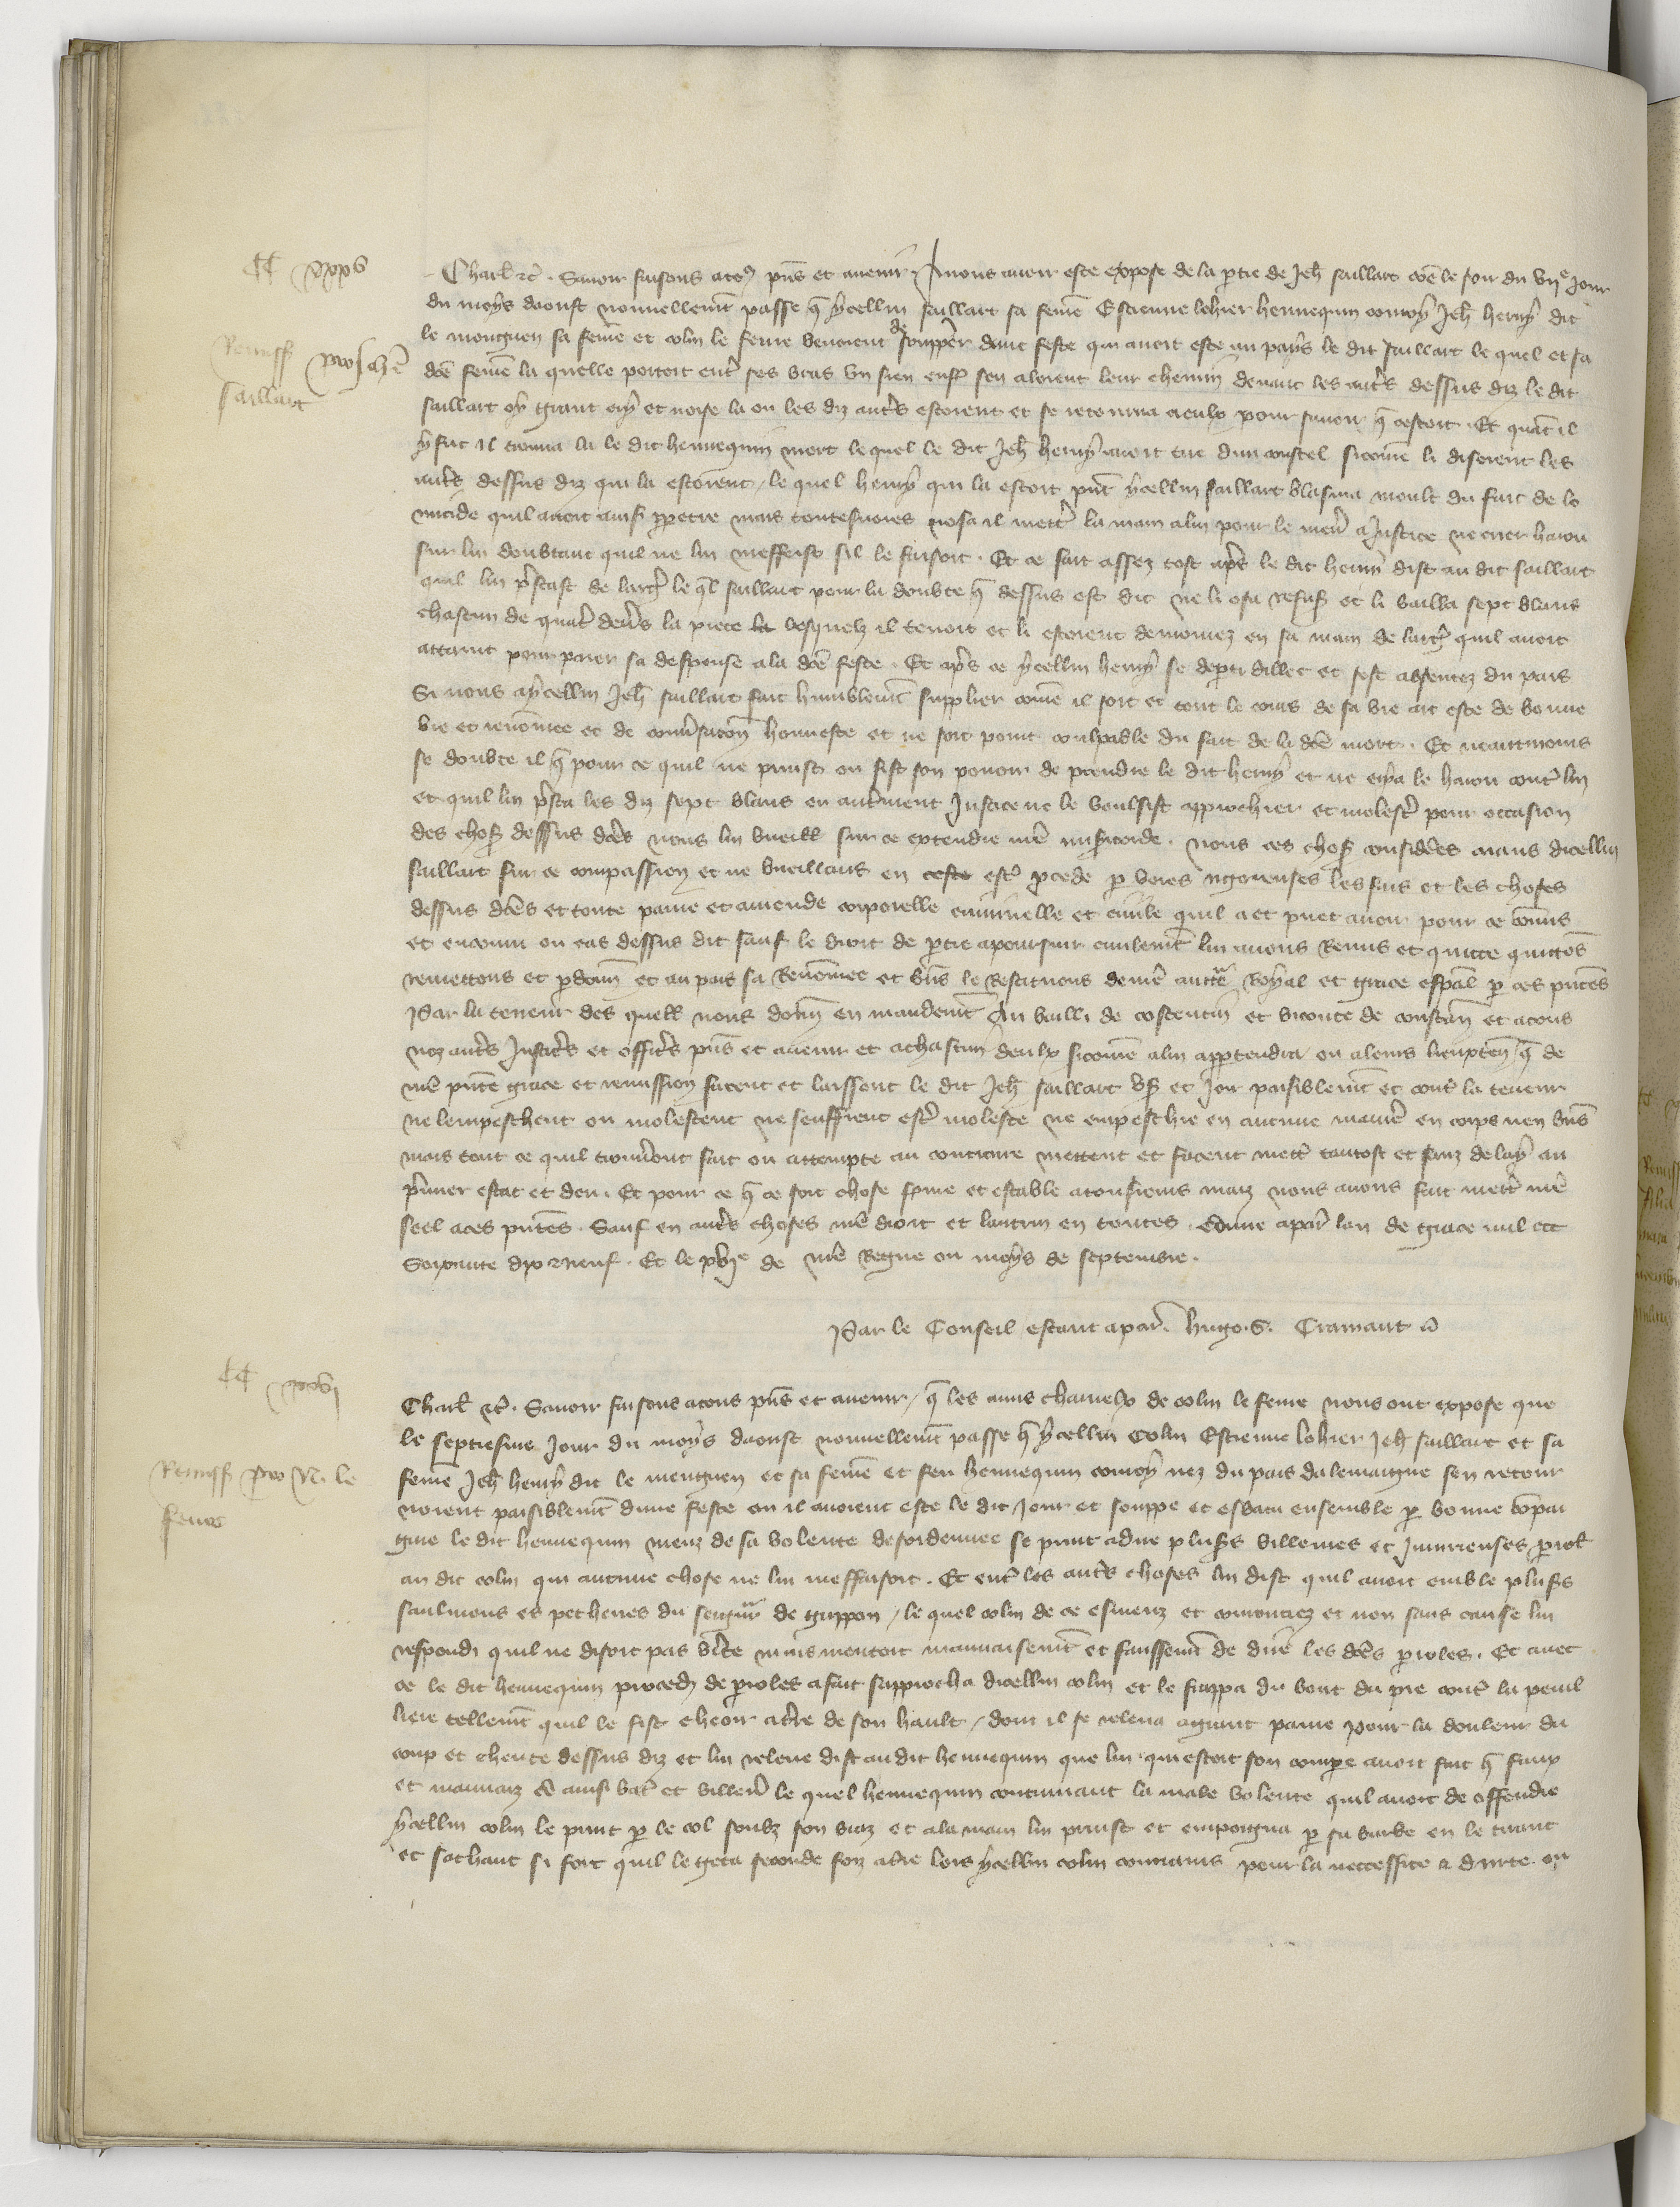 CC XXXV
Charles etc. Savoir faisons a tous pñs et avenir A nous avoir este expose de la ptie de Jeh̃ Saillart cõe le jour du vije jour
du moys daoust nouvellemt̃ passe q̃ ycellui Saillart sa feme Estienne lohier hennequin conroy Jeh̃ henry dit
Remiss̃ pro Joh̃e
Saillart
le menguen sa feme et colin le fevre venoient de soupper dune feste qui avoit este au pays le dit Saillart le quel et sa
dc̃e feme la quelle portoit entr̃ ses bras un sien enf̃ sen aloient leur chemin devant les autr̃s dessus diz le dit
Saillart oy grant cry et noise la ou les diz autr̃s estoient et se retourna a eulx pour savoir q̃ cestoit . Et quant il
y fut il trouva la le dit hennequin mort le quel le dit Jeh̃ henry avoit tue dun coustel si cõme li disoient les
autr̃s dessus diz qui la estoient / le quel henry qui la estoit pñt ycellui Saillart blasma moult du fait de le
micide quil avoit ainsi ppetre mais toutesvoies nosa il mettr̃ la main a lui pour le men̄ a Justice ne crier harou
sur lui doubtant quil ne lui meffeist sil le faisoit . Et ce fait assez tost apr̃s le dit henry dist au dit Saillart
quil lui pr̃stast de largt̃ le q̃l Saillart pour la doubte q̃ dessus est dit ne li osa refus̃ et li bailla sept blans
chascun de quatr̃ den̄s la piece lesquelz il tenoit et li estoient demourez en sa main de largt̃ quil avoit
attaint pour paier sa despense a la dc̃e feste . Et apr̃s ce ycellui henry se dẽpti dillec et sest absentez du pais
Si nous a ycellui Jeh̃ Saillart fait humblemt̃ supplier cõme il soit et tout le cours de sa vie ait este de bonne
vie et renõmee et de convs̃acõn honneste et ne soit point coulpable du fait de la dc̃e mort . Et neantmoins
se doubte il q̃ pour ce quil ne prinst ou fist son povoir de prendre le dit henry et ne crya le harou contr̃ lui
et quil lui pr̃sta les diz sept blans ou autrement Justice ne le voulsist approchier et molestr̃ pour occasion
des chos̃ dessus dc̃es nous lui vueill̃ sur ce extendre nr̃e mis̃icorde . nous ces chos̃ considẽes aians dicellui
Saillart sur ce compassion et ne vueillans en ceste estr̃ p̃cede p voies rigoreuses les fais et les choses
dessus dc̃es et toute paine et amende corporelle criminelle et civile quil a et puet avoir pour ce cõmis
et encouru ou cas dessus dit sauf le droit de ptie a poursuir civilemt̃ lui avons Remis et quitte quittõs
remettons et p̃donñ et au pais sa Renõmee et biñs le Restituons de nr̃e auctẽ Royal et grace esp̃al p ces pñtes
Par la teneur des quell̃ nous donñ en mandemt̃ Au bailli de costentin et viconte de constañ et a tous
noz autr̃s Justic̃s et offic̃s pñs et avenir et a chascun deulx si cõme a lui appartendra ou a leurs lieuxteñ q̃ de
nr̃e pñte grace et remission facent et laissent le dit Jeh̃ Saillart us̃ et Joir paisiblemt̃ et contr̃ la teneur
ne lempeschent ou molestent ne seuffrent estr̃ moleste ne empeschie en aucune manier̃ en corps nen biñs
mais tout ce quil trouveront fait ou attempte au contraire mettent et facent mettr̃ tantost et sanz delay au
pr̃mier estat et deu . Et pour ce q̃ ce soit chose ferme et estable a tousjours maiz nous avons fait mettr̃ nr̃e
seel a ces pñtes . Sauf en autr̃s choses nr̃e droit et lautrui en toutes . donne a par̃ lan de grace mil ccc
Soixante dix et neuf . Et le xvje de nr̃e Regne ou moys de septembre .
Par le Conseil estant a par̃ . hugo . S . Cramant
CC XXVJ
Charles etc. Savoir faisons a tous pñs et avenir / q̃ les amis charnelx de colin le fevre nous ont expose que
le septiesme Jour du moys daoust nouvellemt̃ passe q̃ ycellui Colin Estienne lohier Jeh̃ Saillart et sa
Remiss̃ pro N. le
fevre
feme Jeh̃ henry dit le menguen et sa feme et feu hennequin conroy nez du pais dalemaigne sen retour
noient paisiblemt̃ dune feste ou il avoient este le dit Jour et souppe et esbatu ensemble p bonne cõpai
gnie le dit hennequin meuz de sa volente desordennee se print a dire plus̃s villenies et Jniurieuses parol̃
au dit colin qui aucune chose ne lui meffaisoit . Et entr̃ les autr̃s choses lui dist quil avoit emble plus̃s
saulmons es pescheries du seigneur de grippon / le quel colin de ce esmeuz et corrouciez et non sans cause lui
respondi quil ne disoit pas vr̃te mais mentoit mauvaisemt̃ et faussemt̃ de dire les dc̃es paroles . Et avec
ce le dit hennequin proced̃ de paroles a fait sapprocha dicellui colin et le frappa du bout du pie contr̃ la penil
liere tellemt̃ quil le fist cheoir a tr̃re de son hault / dont il se releva a grant paine pour la douleur du
coup et cheute dessus diz et lui releve dist au dit hennequin que lui qui estoit son compere avoit fait q̃ faux
et mauvaiz de ainsi batr̃ et villen̄ le quel hennequin continuant la male volente quil avoit de offendre
ycellui colin le print p le col soubz son braz et a la main lui prinst et empoigna p sa barbe en le tirant
et sachant si fort quil le geta seconde foiz a tr̃re lors ycellui colin contrains pour la neccessite et durte ou